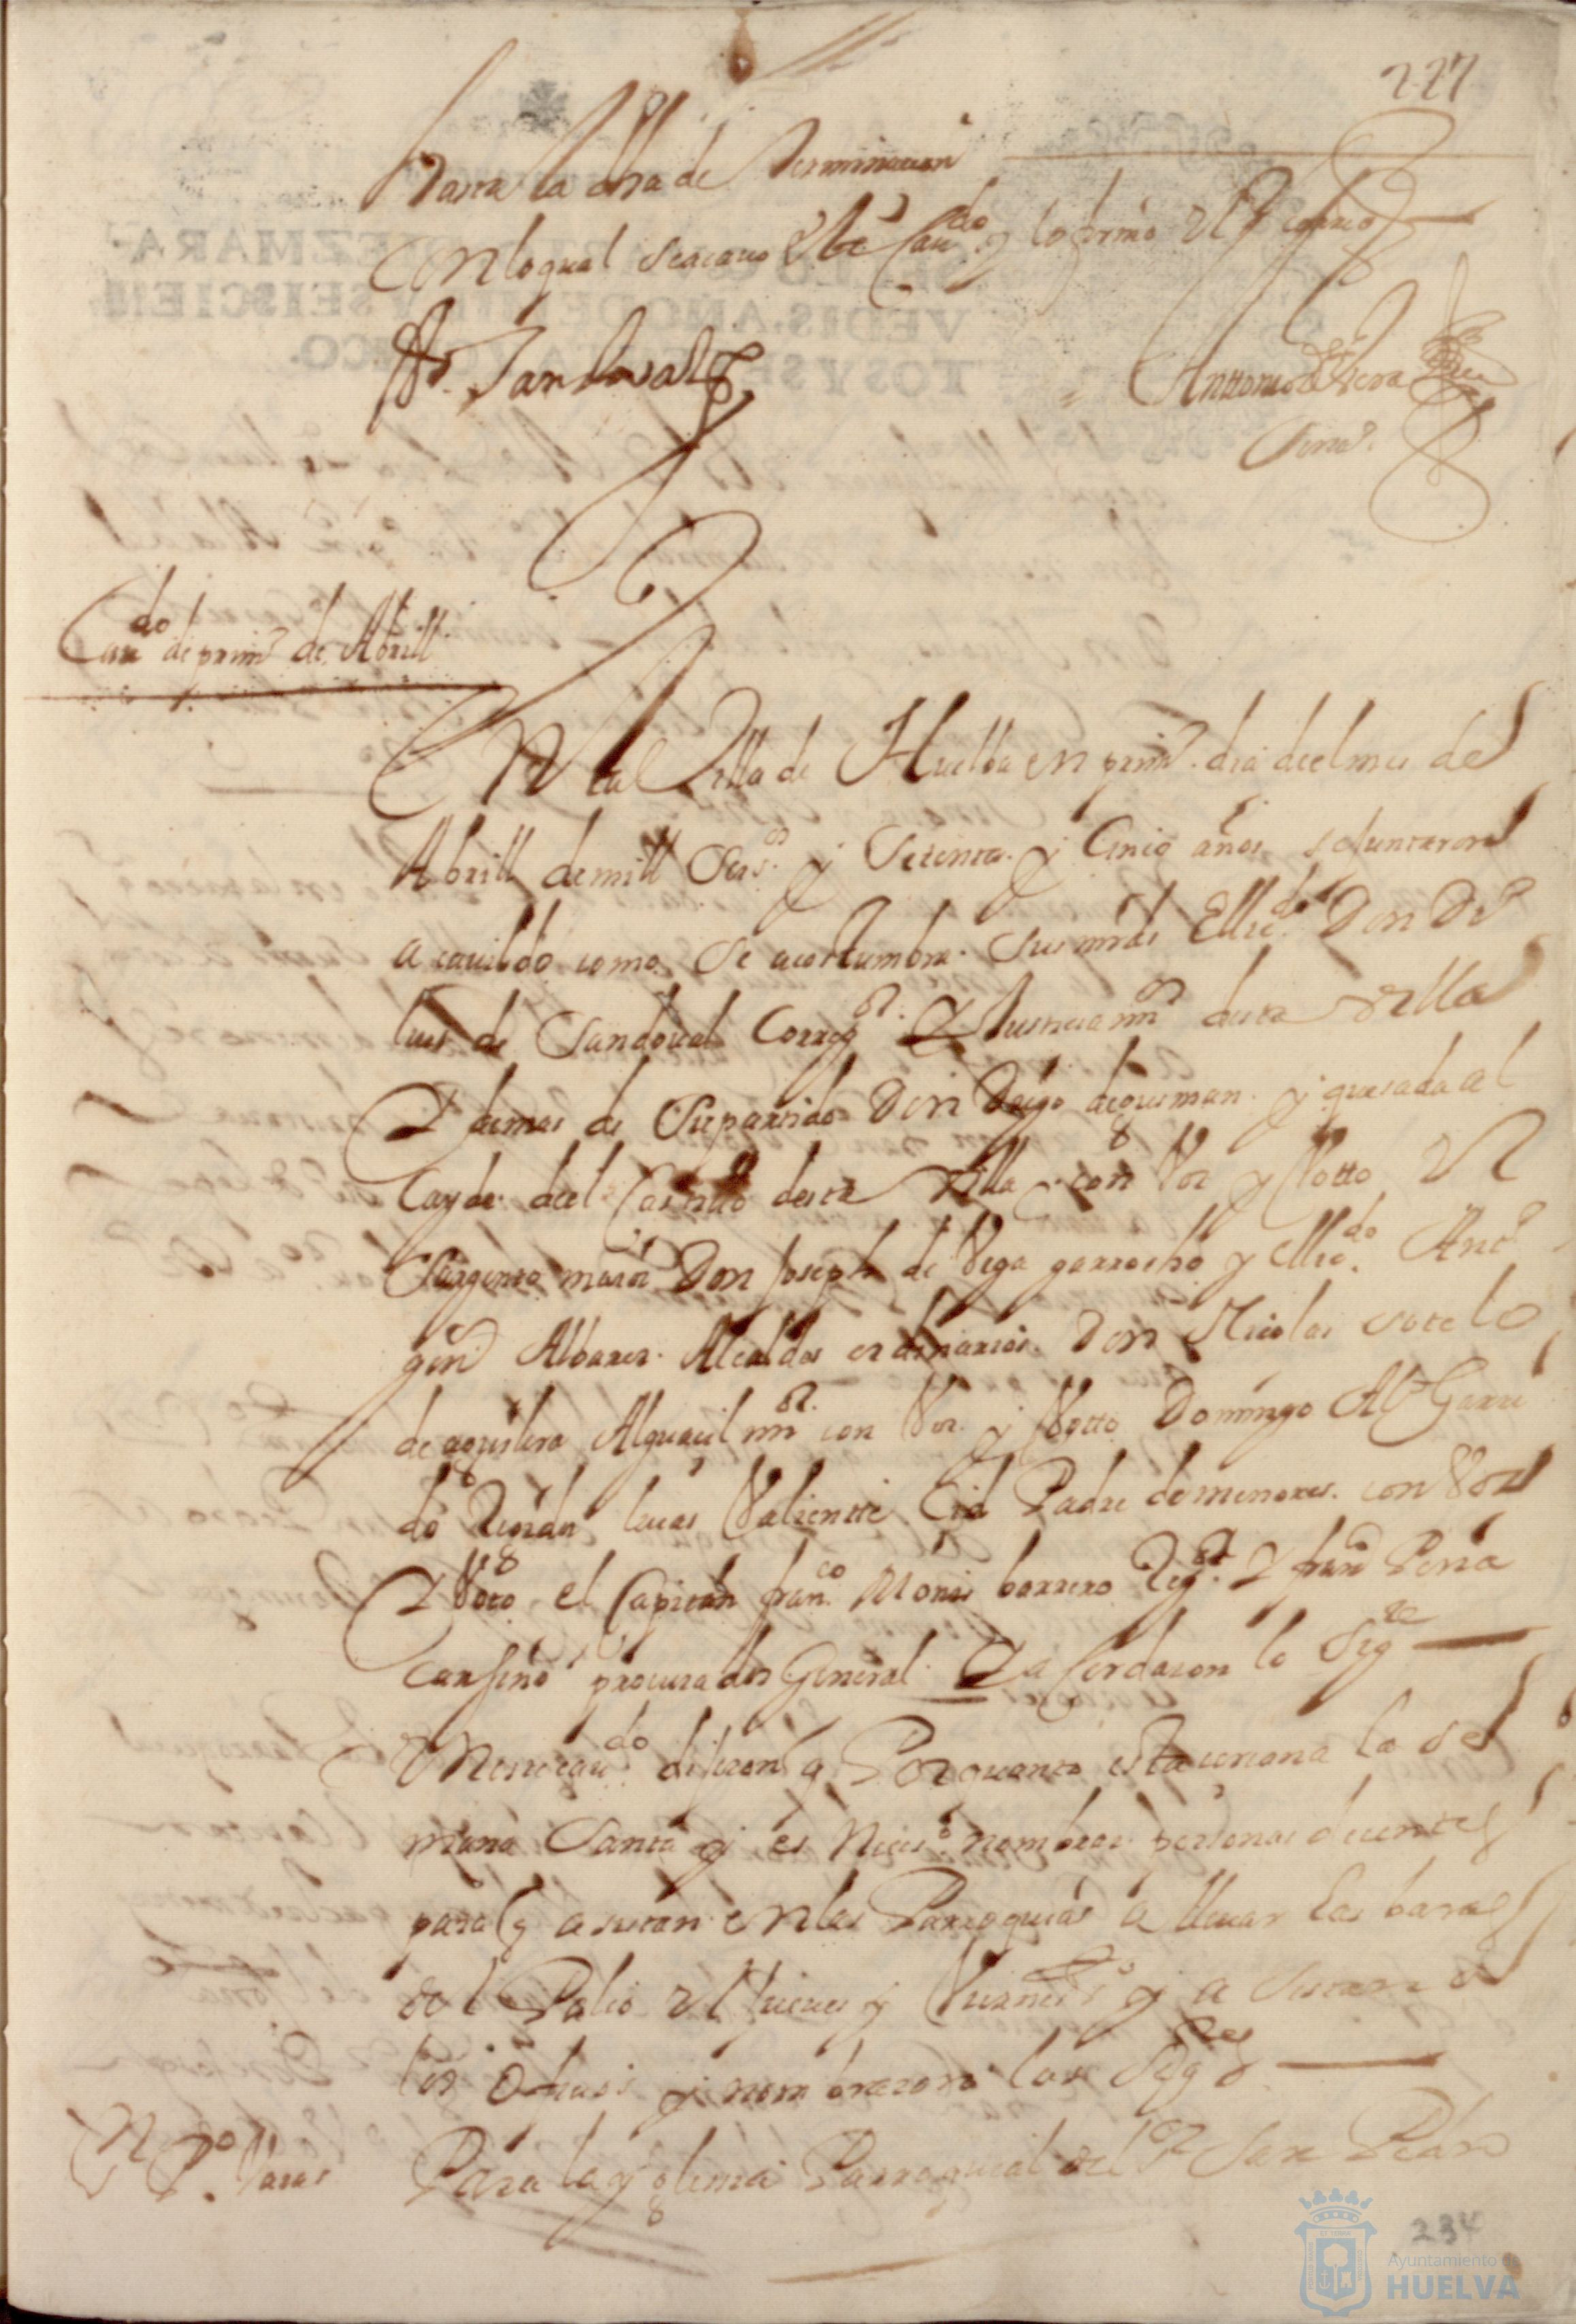 227
hasta la otra de terminacion
Con lo qual se acavo este Cau.do y lo firmo el S.r Corre.or
Sandoval
Anttonio de Vera
Cau.do de prim.o de Abrill
En la Villa de Huelba en prim.o dia deel mes de
Abrill de mill Seis.s y Setenta y Cinco años se Juntaron
a cauildo como se acostumbra Sus mrds El lic.do Don D.o
luis de Sandoual Correg.or y Justicia m.or desta Villa
Y demas de Su partido Don Diego de gusman y quesada al
Cayde deel Castillo desta Villa con Vos y Votto El
Sargento maior Don Joseph de Vega garrocho y el lic.do Ant.o
Albares Alcaldes ordinarios Don Nicolas sotelo
de aguilera Alguacil m.or con Vos y Votto Domingo Al.o Garri
do Roldan lucas Valientte Cid Padre de menores con Vos
Y Voto el Capitan fran.co Monis barrero Reg.or Y fran.co Peña
Carseño procurador General Y a Cordaron lo Sig.te
En este cau.do dijeron q Por quanto esta cercana la se
mana Santa y es Neces.o nombrar personas desentes
para q asistan en las Parroquias a lleuar las baras
del Palio El Jueues y Viernes S.to y a sistan a
los Ofisios y nombraron los Sig.tes
N.to P.o Varas
Para la yglesia Parroquial del S.r San Pedro
234
Ayuntamiento de
HUELVA